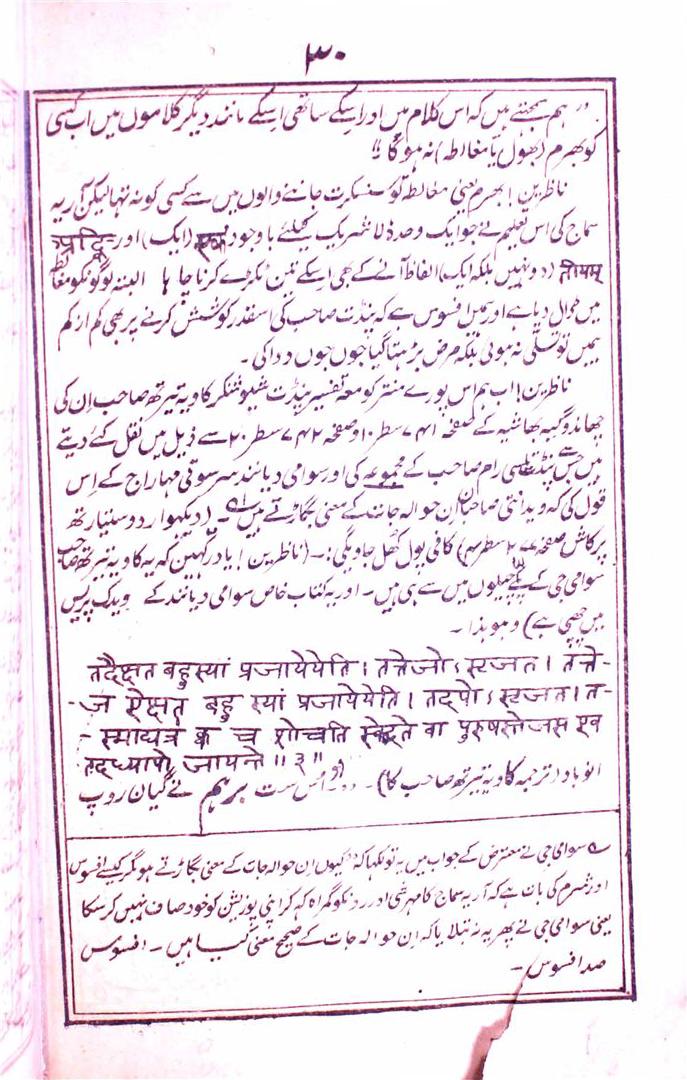 ۳۰
ہم سمجھتے ہیں کہ اس کلام میں اور اسکے ساتھی اسکے مانند دیگر کلاموں میں اب کسی
کو بھرم (بھول یا مغالطہ) نہ ہوگا ؛؛
ناظرین! بھرم یعنی مغالطہ تو سنسکرت جاننے والوں میں سے کسی کو نہ تھا لیکن آریہ
سماج کی اس تعلیم نے جو ایک وحدہٗ لا شریک کیلئے باوجود एक (ایک) اور
तीयम् (دو نہیں بلکہ ایک) الفاظ آنے کے بھی اسکے تین ٹکڑے کرنا چاہا البتہ لوگونکو مغالطہ
میں ڈال دیا ہے اور ہمیں افسوس ہے کہ پنڈت صاحب کی اسقدر کوشش کرنے پر بھی کم از کم
ہمیں تو تسلی نہ ہوئی بلکہ مرض بڑہتا گیا جوں جوں دوا کی۔
ناظرین! اب ہم اس پورے منتر کو معہ تفسیر پنڈت شیو شنکر کاویہ تیرتھ صاحب ان کی
چھاندوگیہ بھاشیہ کے صفحہ ۷۴۱ سطر ۱۰ و صفحہ ۷۴۲ سطر ۲۰ سے ذیل میں نقل کئے دیتے
ہیں جس سے پنڈت تلسی رام صاحب کے مجموعہ کی اور سوامی دیانند سرسوتی مہاراج کے اس
قول کی کہ ویدانتی صاحبان ان حوالہ جات کے معنی بگاڑتے ہیں۔ (دیکھو اردو ستیارتھ
پرکاش صفحہ ۲۷ سطر ۴) کافی پول کھل جاویگی:۔ (ناظرین! یاد رکہیں کہ یہ کاویہ تیرتھ صاحب
سوامی جی کے پکے چیلوں میں سے ہی ہیں۔ اور یہ کتاب خاص سوامی دیانند کے ویدک پریس
میں چھپی ہے) وہو ہذا۔
तदैक्षत बहुस्यां प्रजायेयेति। तत्तेजोऽसृजत। तत्ते-
-ज ऐक्षत बहु स्यां प्रजायेयेति। तदपोऽसृजत। त-
-स्माद्यत्र क्व च शोचति स्वेदते वा पुरुषस्तेजस एव
तदध्यापो जायन्ते॥३॥
انوباد (ترجمہ کاویہ تیرتھ صاحب کا)۔ اس ست برہم نے گیان روپ
سوامی جی نے معترض کے جواب میں یہ تو لکھا کہ کیوں ان حوالہ جات کے معنی بگاڑتے ہو مگر کیسے افسوس
اور شرم کی بات ہے کہ آریہ سماج کا مہرشی اوروں کو گمراہ کہہ کر اپنی پوزیشن کو خود صاف نہیں کر سکا
یعنی سوامی جی نے پھر یہ نہ بتلایا کہ ان حوالہ جات کے صحیح معنی کیا ہیں۔ افسوس
صد افسوس۔